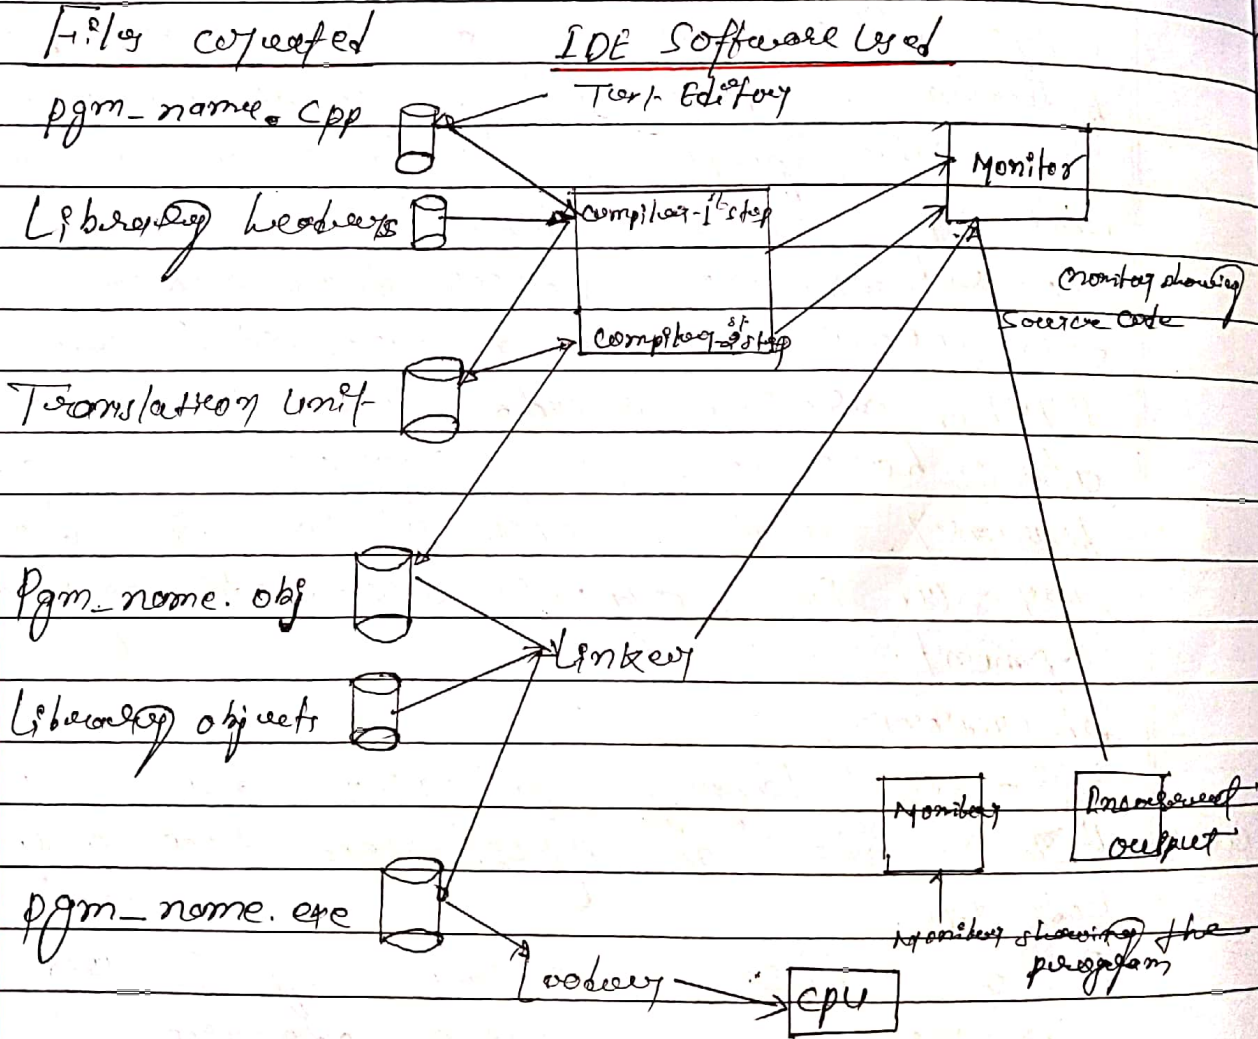 Files created
IDE Software Used
pgm_name.cpp
Text Editor
Monitor
Library headers
Compiler-1st step
Monitor showing
source code
Compiler-2st step
Translation unit
Pgm_name.obj
Linker
Library objects
Monitor
output
pgm_name.exe
Monitor showing the
program
Loader
CPU